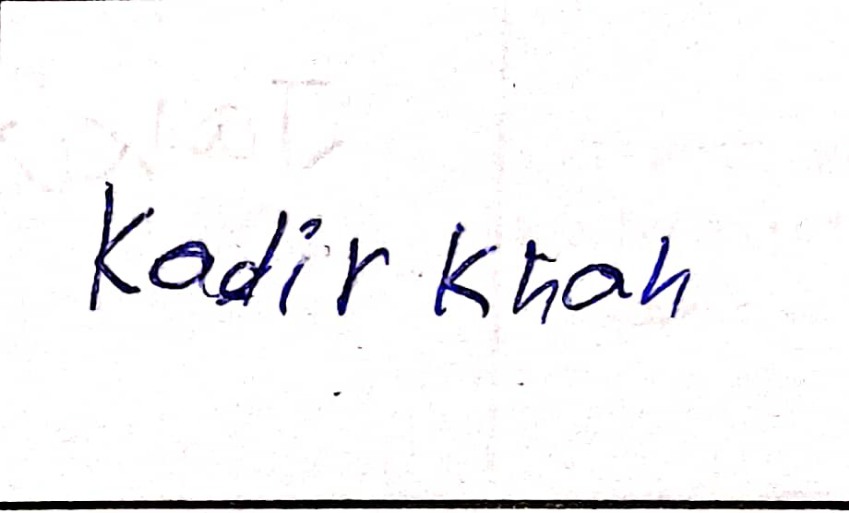 Kadir Khan